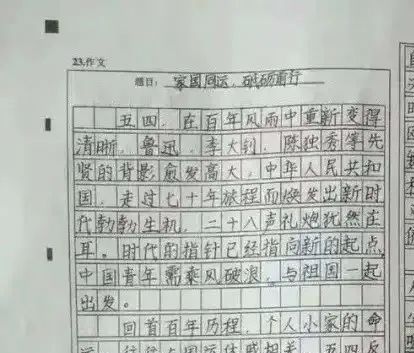 23.作文
题目: 家国同运,砥砺前行
五四,在百年风雨中重新变得
清晰。鲁迅,李大钊,陈独秀等先
贤的背影愈发高大,中华人民共和
国,走过七十年旅程而焕发出新时
代勃勃生机,二十八声礼炮犹然在
耳。时代的指针已经指向新的起点,
中国青年需乘风破浪,与祖国一起
出发。
回首百年历程,个人小家的命
五四反